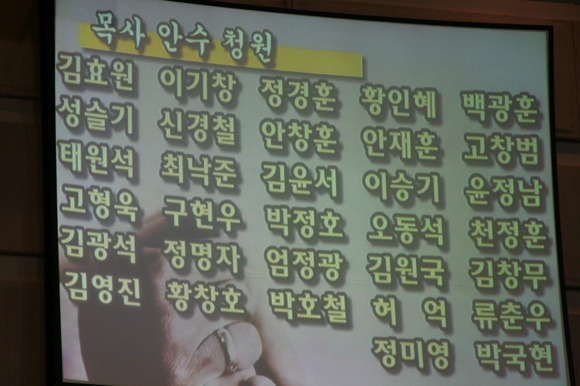 목사 안수 청원
김효원 이기창 정경훈 황인혜 백광훈
성슬기 신경철 안창훈 안재훈 고창범
태원석 최낙준 김윤서 이승기 윤정남
고형욱 구현우 박정호 오동석 천정훈
김광석 정명자 엄정광 김원국 김창무
김영진 황창호 박호철 허 억 류춘우
정미영 박국현